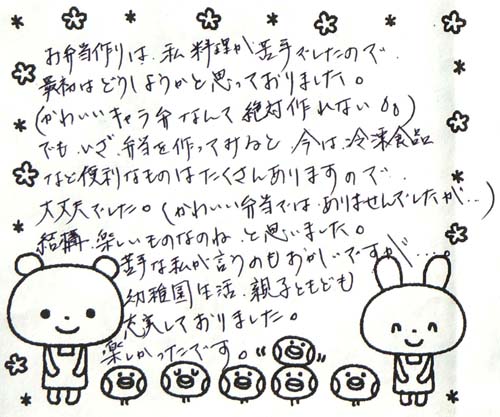 お弁当作りは、私料理が苦手でしたので、
最初はどうしようかと思っておりました。
(かわいいキャラ弁なんて絶対作れない)
でも、いざ、弁当を作ってみると、今は、冷凍食品
など便利なものはたくさんありますので、
大丈夫でした。(かわいい弁当では、ありませんでしたが…)
結構、楽しいものなのね、と思いました。
苦手な私が言うのもおかしいですが…。
幼稚園生活、親子ともども
充実しておりました。
楽しかったです。